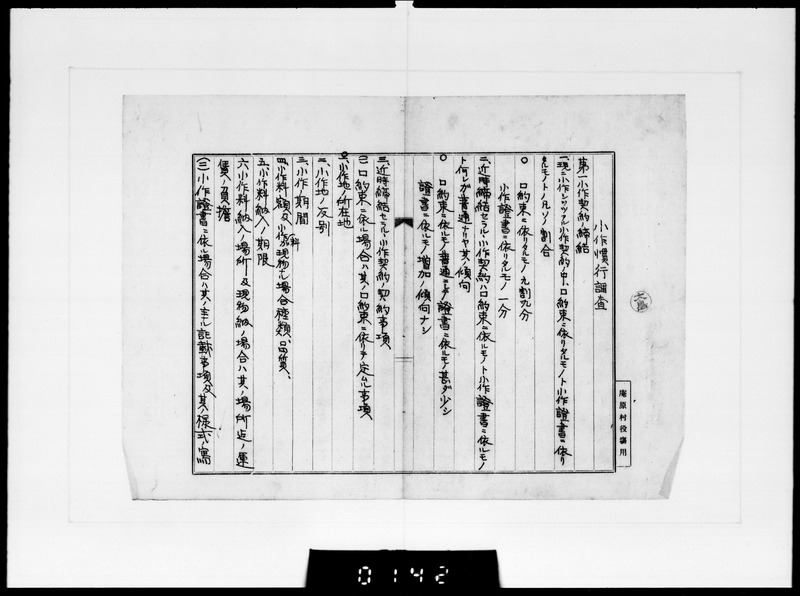 小作慣行調査
第一 小作契約ノ締結
一、現ニ小作シツツアル小作契約ノ中、口約束ニ依リタルモノト小作證書ニ依リ
タルモノトノ凡ソノ割合
○ 口約束ニ依リタルモノ 九割九分
小作證書ニ依リタルモノ 一分
二、近時締結セラルル小作契約ハ口約束ニ依ルモノト小作證書ニ依ルモノ
ト何レガ普通ナリヤ其ノ傾向
○ 口約束ニ依ルモノ普通ニシテ證書ニ依ルモノ甚ダ少シ
證書ニ依ルモノ増加ノ傾向ナシ
三、近時締結セラルル小作契約ノ契約事項
(一) 口約束ニ依ル場合ハ其ノ口約束ニ依リテ定ムル事項
一、小作地ノ所在地
二、小作地ノ反別
三、小作ノ期間
四、小作料額及小作料現物ナル場合種類、品質、
五、小作料納入ノ期限
六、小作料納入ノ場所及現物納ノ場合ハ其ノ場所迄ノ運
賃ノ負擔
(二) 小作證書ニ依ル場合ハ其ノ主ナル記載事項及其ノ様式ノ寫
庵原村役場用
0142